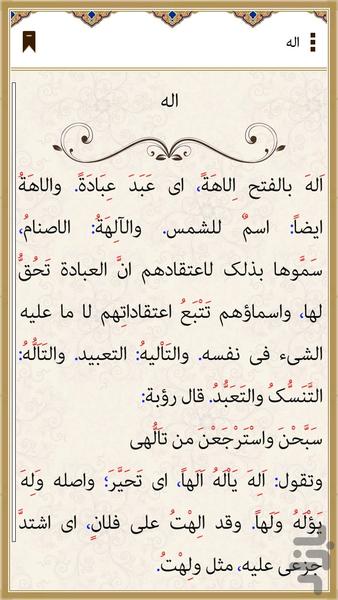 اله
اله
اَلهَ بالفتح اِلاهَةً، ای عَبَدَ عِبَادَةً. والاهَةُ
ایضاً: اسمٌ للشمس. والآلِهَةُ: الاصنامُ،
سَمَّوها بذلک لاعتقادهم انَّ العبادة تَحُقُّ
لها، واسماؤهم تَتْبَعُ اعتقاداتِهم لا ما علیه
الشیء فی نفسه. والتَاْلیهُ: التعبید. والتَاَلُّهُ:
التَّنَسُّکُ والتَعَبُّدُ. قال رؤبة:
سَبَّحْنَ واسْتَرْجَعْنَ من تَاَلُّهی
وتقول: اَلِهَ یَاْلَهُ اَلَهاً، ای تَحَیَّرَ؛ واصله وَلِهَ
یَؤْلَهُ وَلَهاً. وقد اَلِهْتُ علی فلانٍ، ای اشتدَّ
جزعی علیه، مثل ولِهْتُ.
بازار